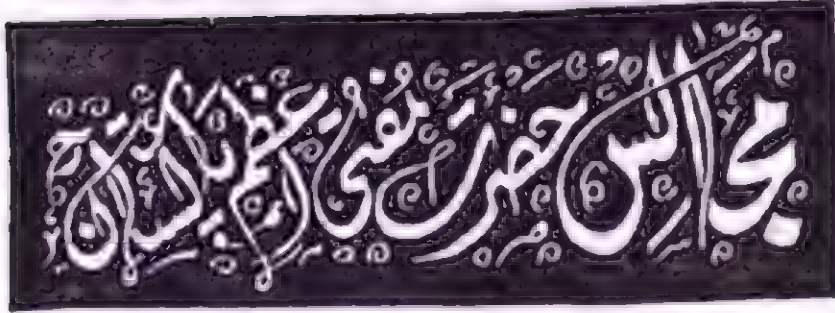 مجالس حضرت مفتی اعظم پاکستان